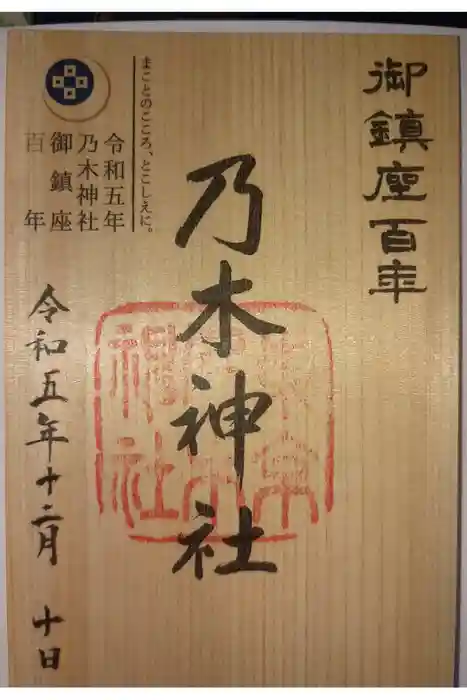 御鎮座百年
乃木神社
まことのこころ、とこしえに。
令和五年
乃木神社
御鎮座
百年
令和五年十二月 十日